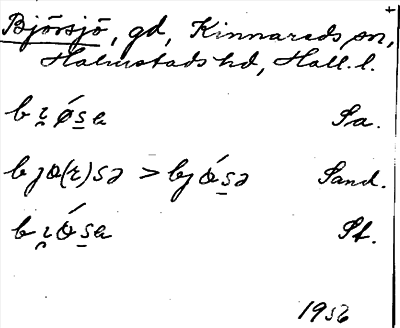 Björsjö, gd, Kinnareds sn,
Halmstads hd, Hall. l.
bɪ̯ǿsa Sa.
bjɷ(r)sə > bjɷ́sə Sand.
bɪ̯ɷ́sa St.
1956